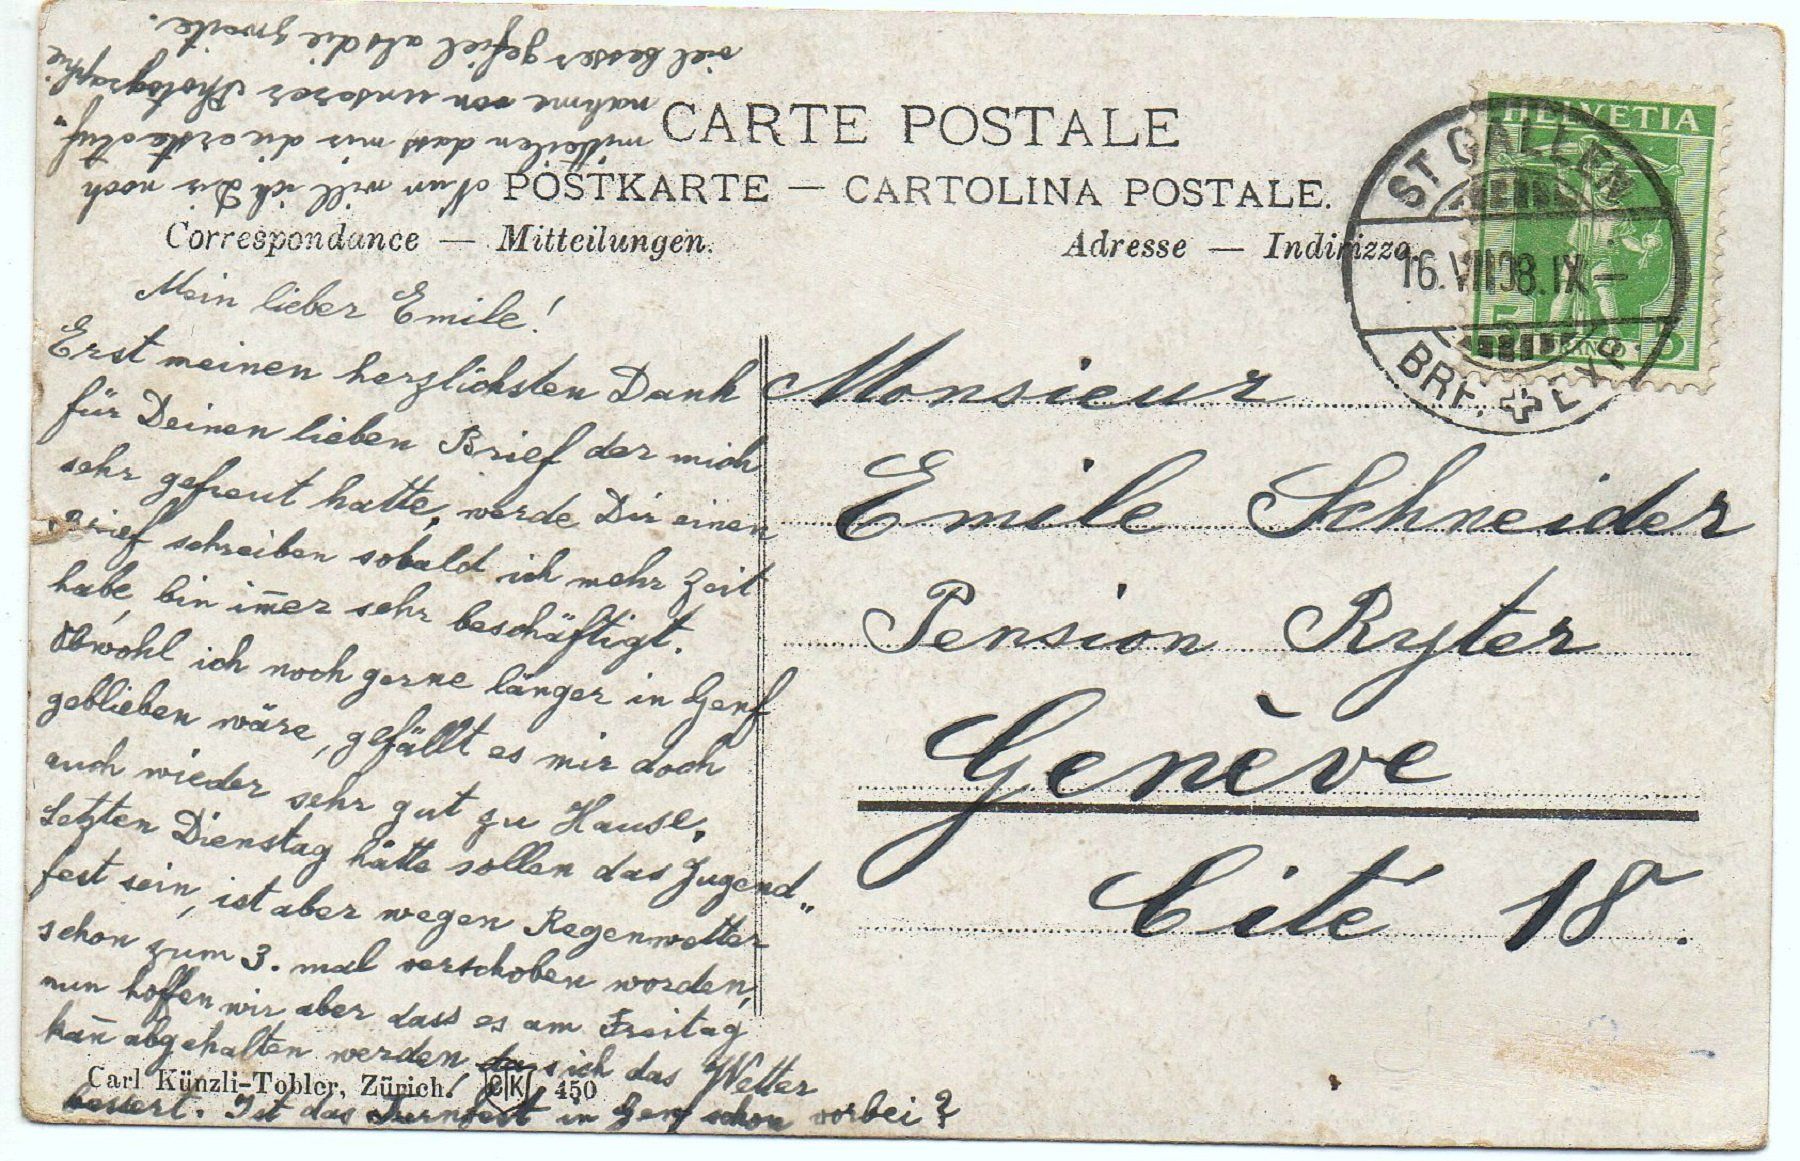 CARTE POSTALE
POSTKARTE — CARTOLINA POSTALE.
Correspondance — Mitteilungen.
Adresse — Indirizzo.
HELVETIA
5 5
ST. GALLEN
16.VII.08.IX–
BRF. EXP.
Mein lieber Emile!
Erst meinen herzlichsten Dank
für Deinen lieben Brief der mich
sehr gefreut hatte, werde Dir einen
Brief schreiben sobald ich mehr Zeit
habe, bin im̄er sehr beschäftigt.
Obwohl ich noch gerne länger in Genf
geblieben wäre, gefällt es mir doch
auch wieder sehr gut zu Hause.
Letzten Dienstag hätte sollen das Jugend„
fest sein, ist aber wegen Regenwetter
schon zum 3. mal verschoben worden,
nun hoffen wir aber dass es am Freitag
kan̄ abgehalten werden, sich das Wetter
bessert. Ist das Turnfest in Genf schon vorbei?
Nun will ich Dir noch
mitteilen dass mir die erste Auf„
nahme von unserer Photographie
viel besser gefiel als die zweite.
Monsieur
Emile Schneider
Pension Ryter
Genève
Cité 18.
Carl Künzli-Tobler, Zürich. CK 450